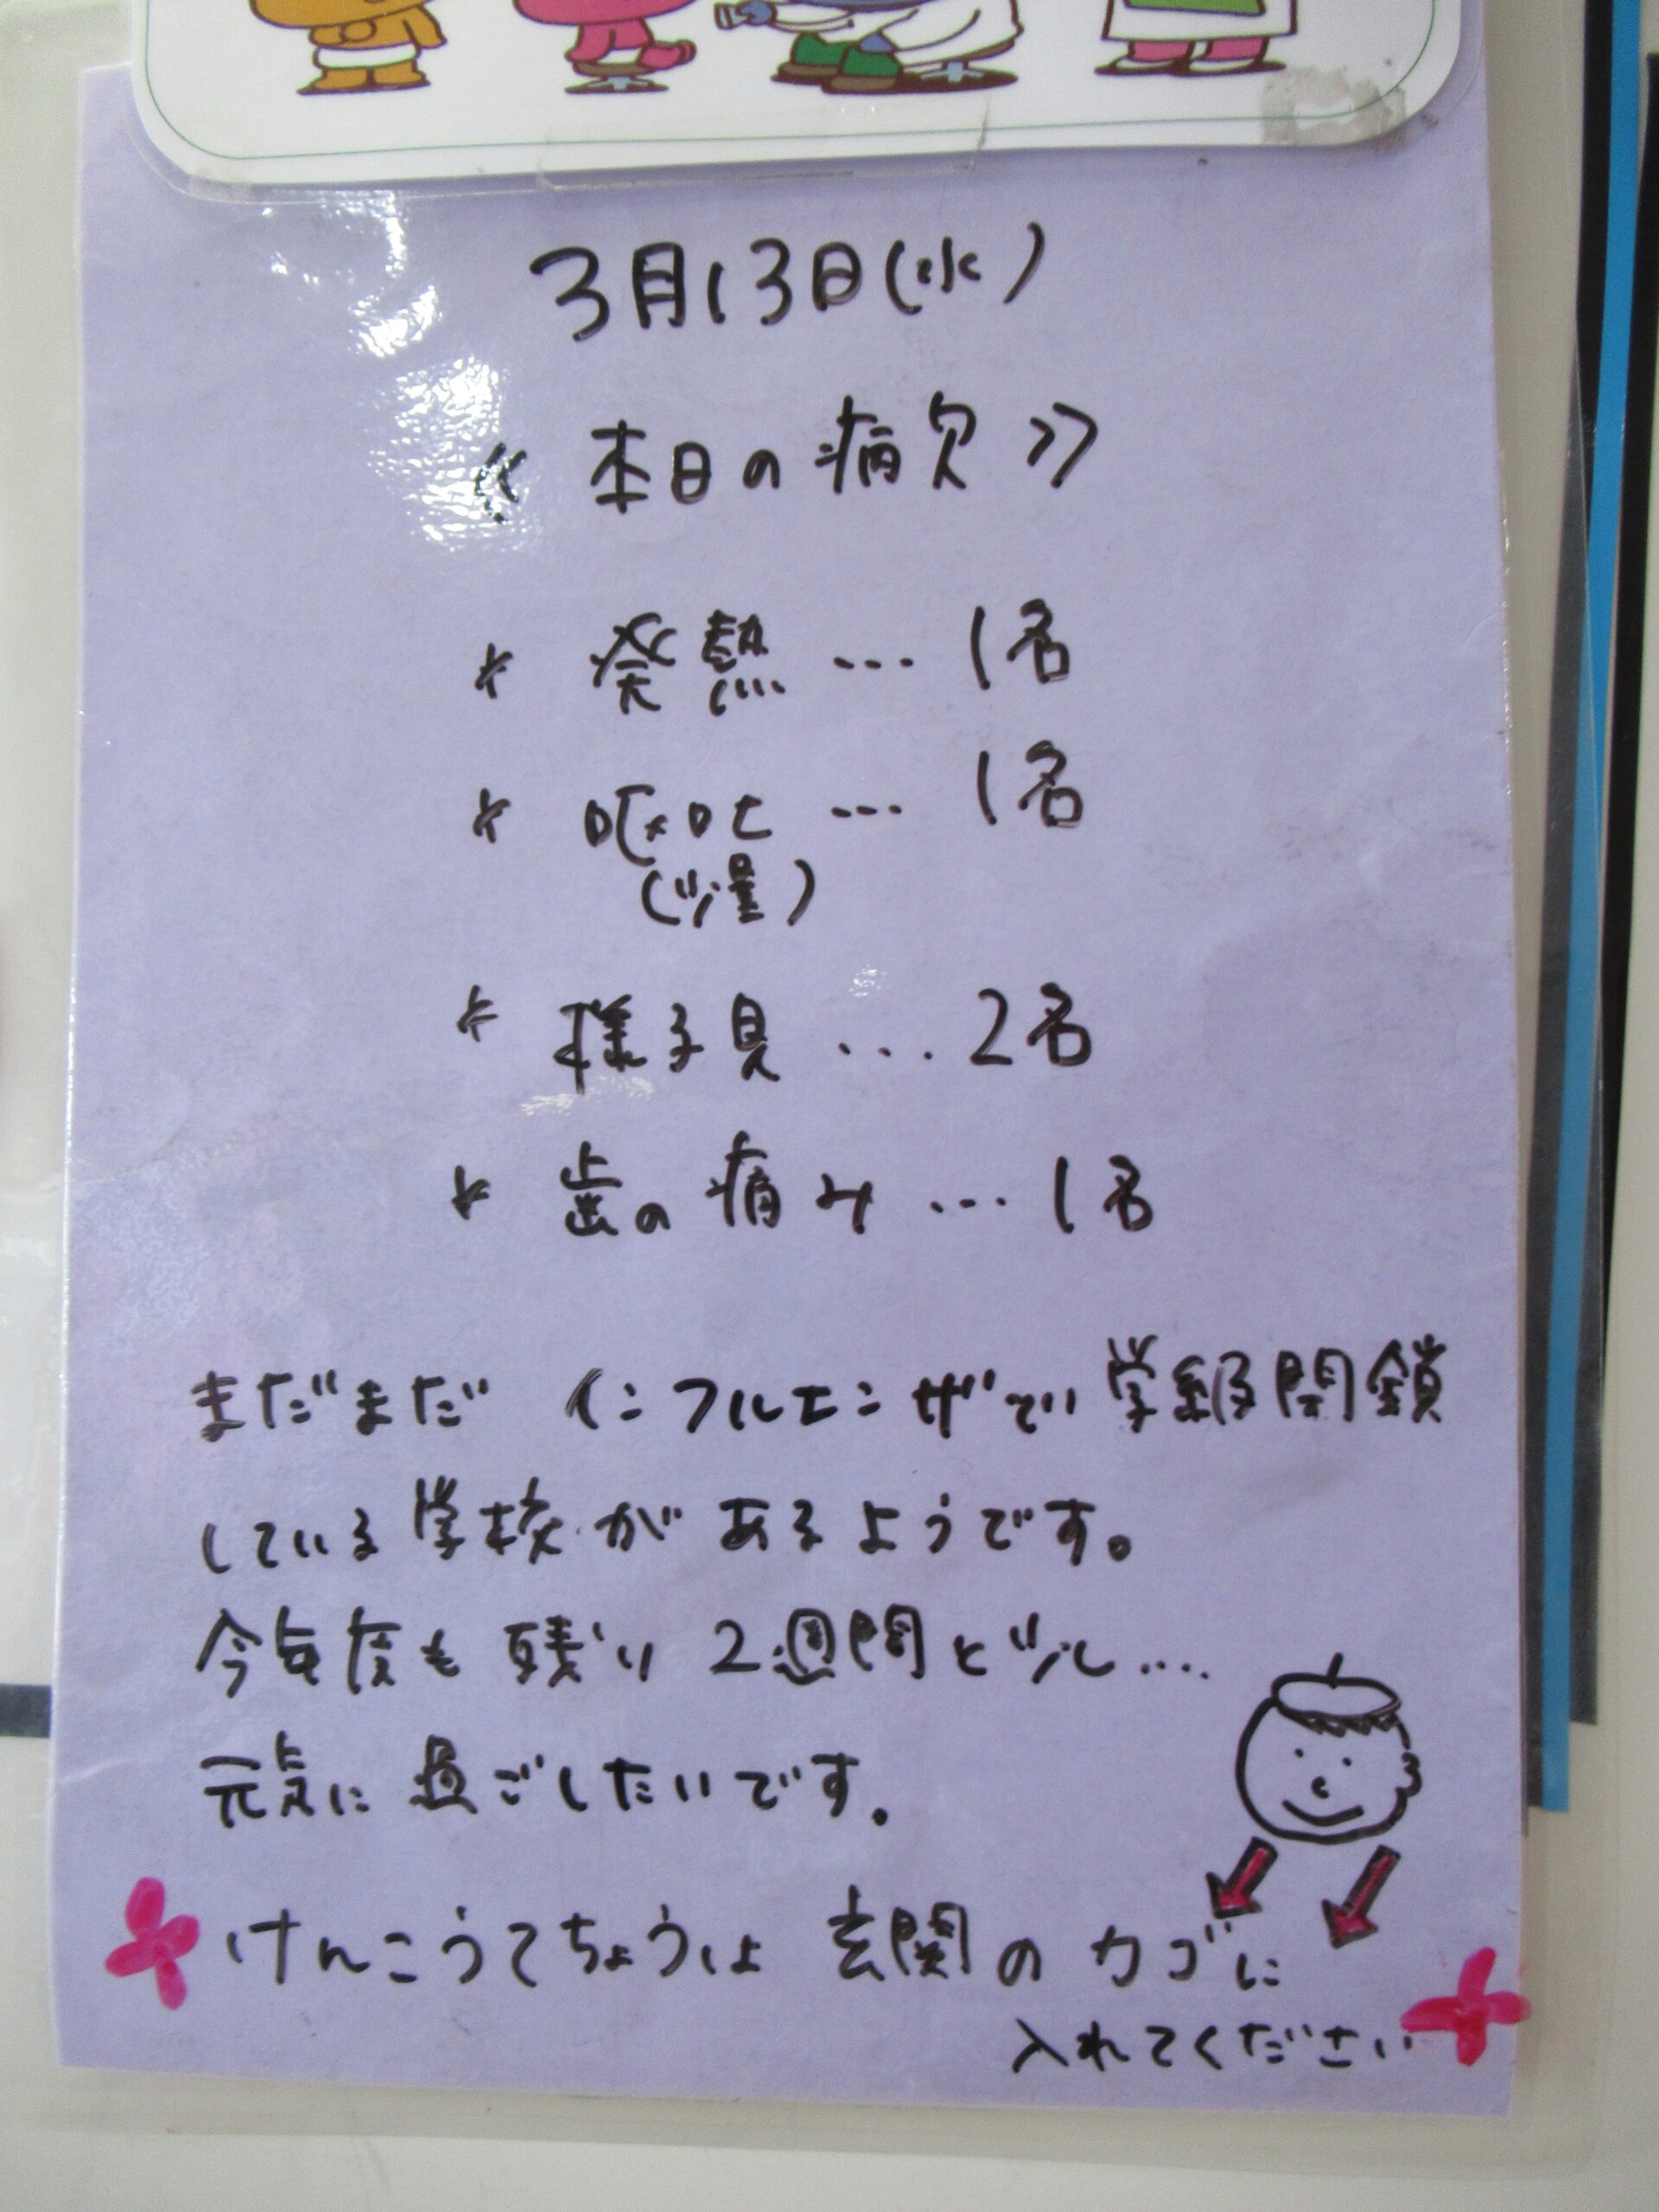 3月13日(水)
《 本日の病欠 》
* 発熱 … 1名
* 嘔吐 … 1名
(少量)
* 様子見 … 2名
* 歯の痛み … 1名
まだまだ インフルエンザで 学級閉鎖
している学校が あるようです。
今年度も 残り 2週間と少し....
元気に 過ごしたいです。
けんこうてちょうは 玄関の カゴに
入れてください